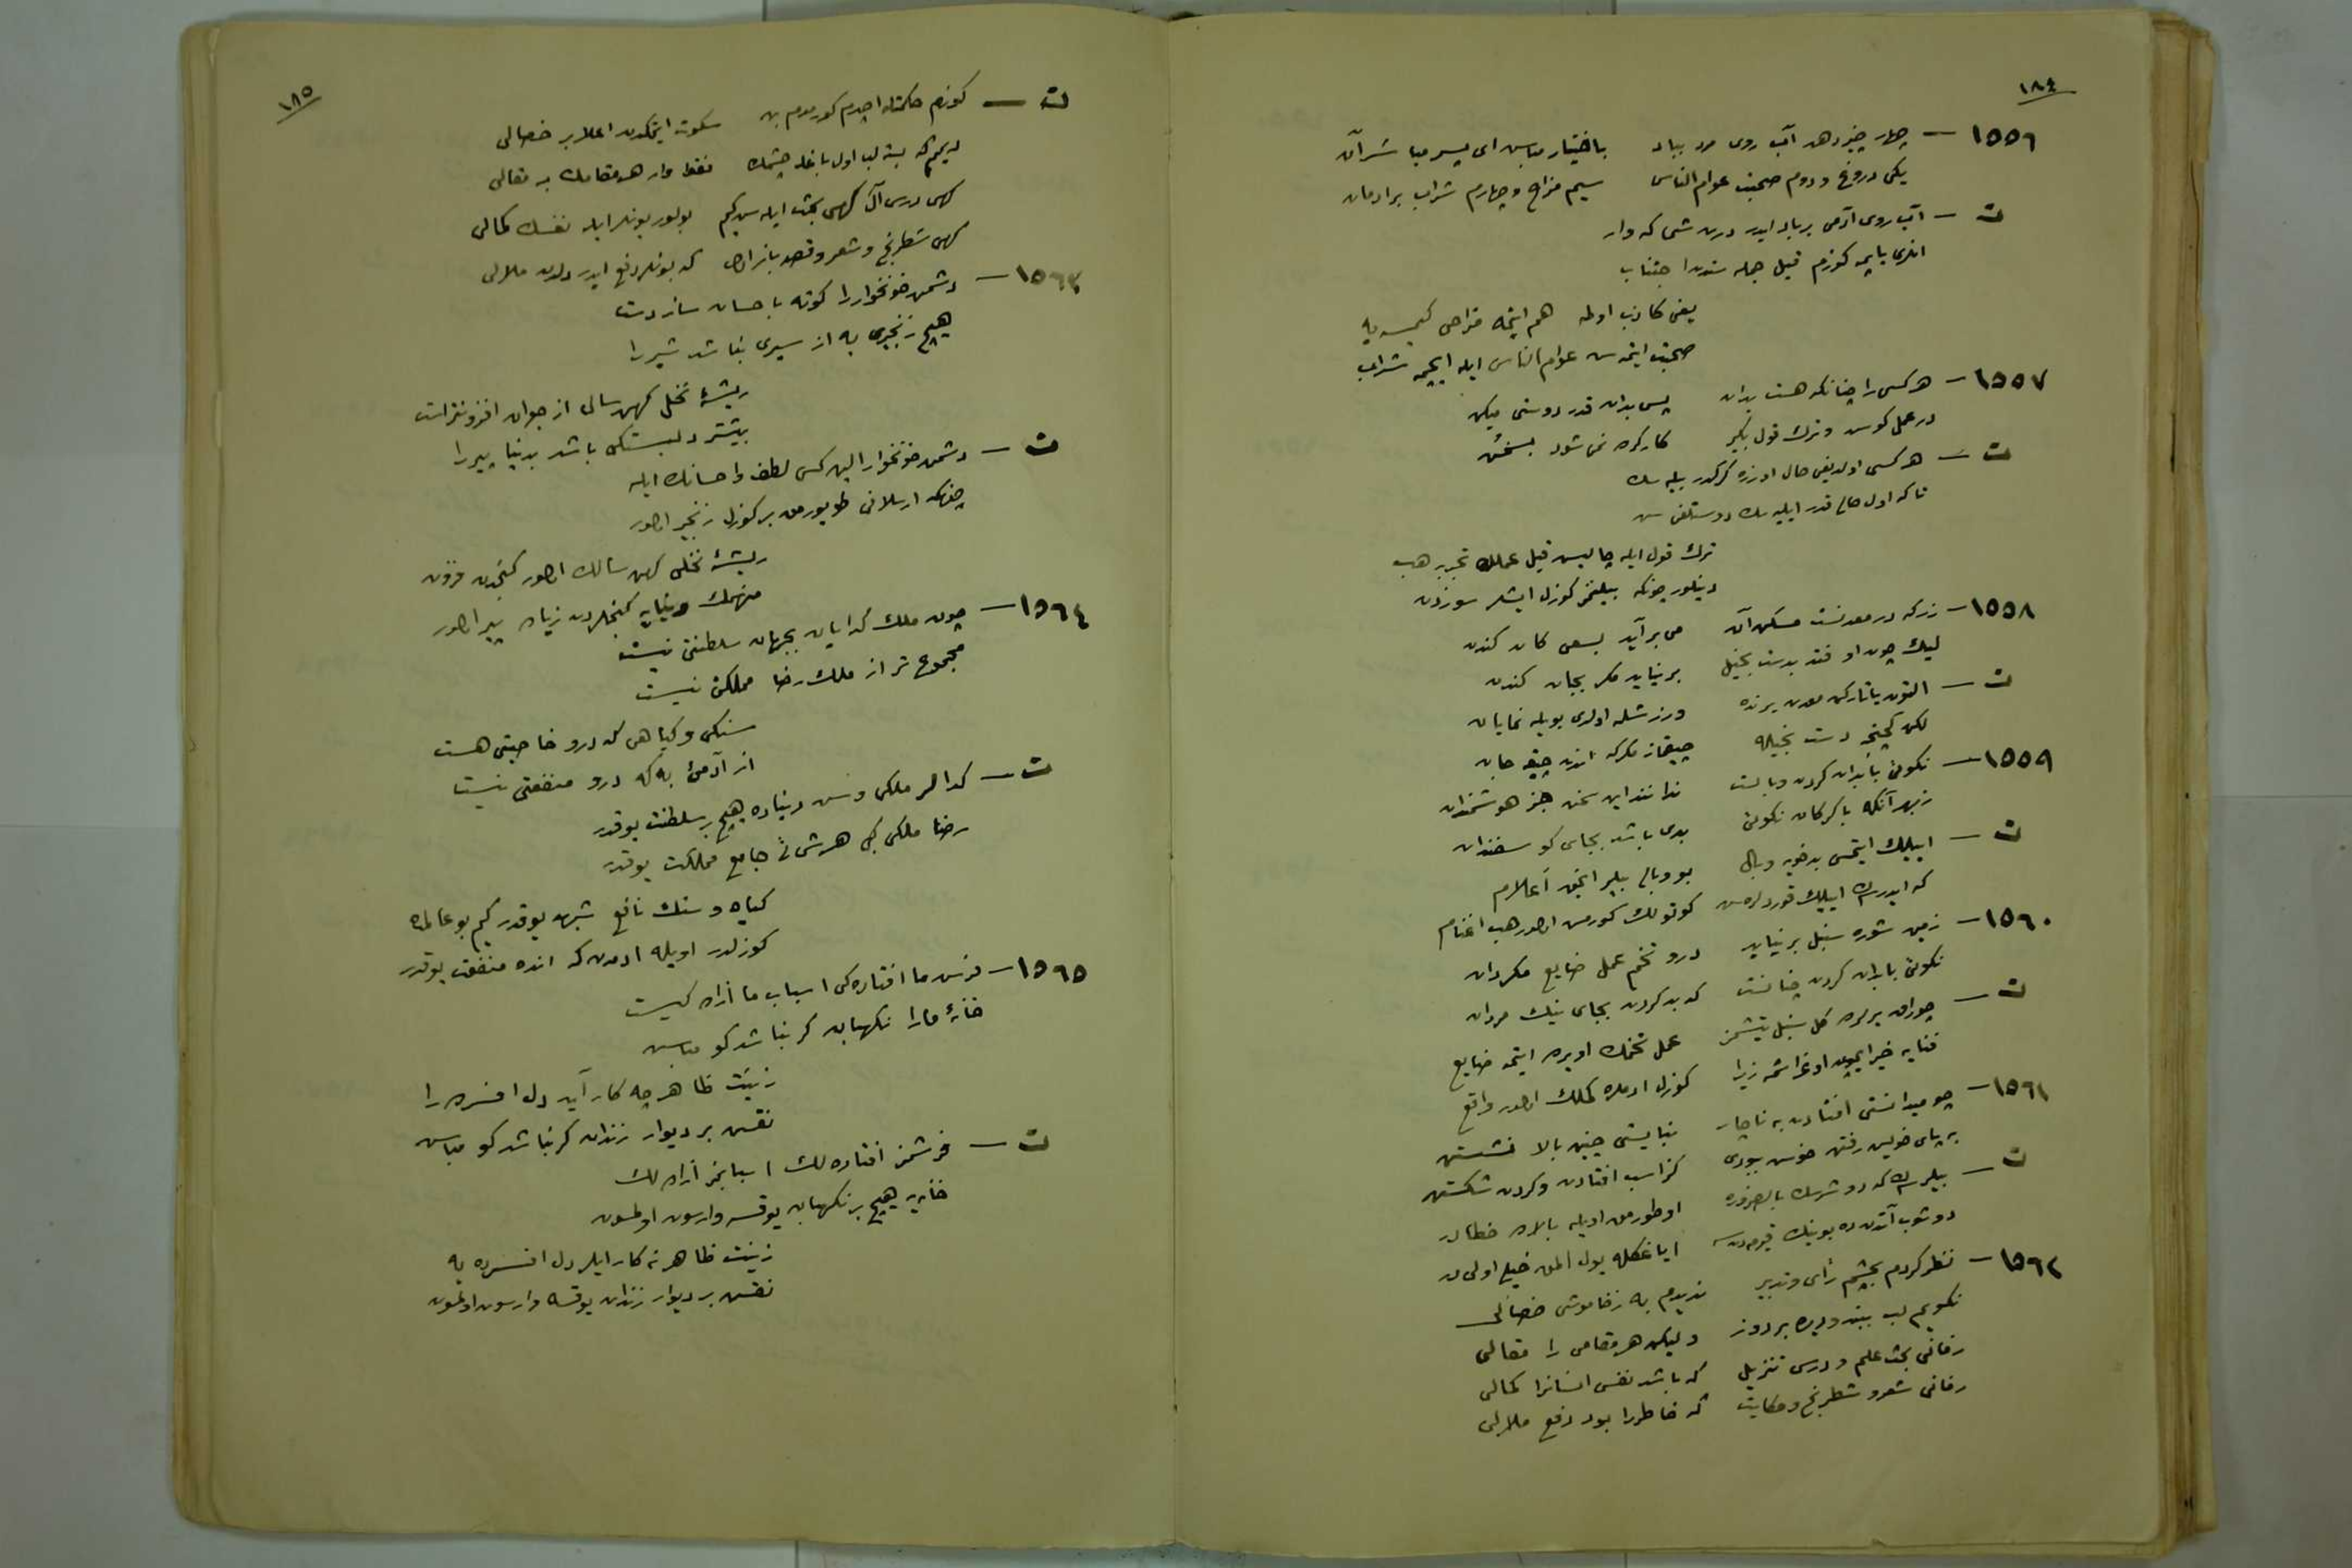 ١٨٤
١٥٥٦ — چهار چیز دهد آب روی مرد بباد باختیار مباش ای پسر مباشر آن
یکی دروغ و دوم صحبت عوام الناس سیم مزاح و چهارم شراب
ت — آب روی آدمی بر باد ایدر درت شی که وار
کوزم قیل جمله سندن اجتناب
یعنی کاذب اولمه هم ایتمه مزاحی کیمسه یه
صحبت ایتمه سن عوام الناس ایله ایچمه شراب
١٥٥٧ — هر کسی را چنانکه هست بدان پس بدان قدر دوستی میکن
در عمل کوش و ترک قول بگیر کار کرده نمی شود بسخن
ت — هر کسی اولدیغی حال اوزره کرکدر بیله سک
تا که اول حال قدر ایلیه سک دوستلغی سن
ترک قول ایله چالیش قیل عملک تجربه هب
دینلور چونکه بیلنمز کوزل ایشلر سوزدن
١٥٥٨ — زر که در معدنست مسکن آن می بر آید بسعی کان کندن
لیک چون او فتد بدست بخیل بر نیاید مگر بجان کندن
ت — التون یاتارکن معدن یرنده ورزشله اولدی بویله نمایان
لکن کچنجه دست بخیله چیقماز مکر که اندن چیقه جان
١٥٥٩ — نکوئی با بدان کردن وبالست ندانند این سخن جز هوشمندان
زبهر آنکه با گرگان نکوئی بدی باشد بجای گوسفندان
ت — ایلیک ایتمسی بدخویه وبال بو وبالی بیلیر انجق أعلام
که ایدرسک ایلیک قوردلره سن کوتولک کورمش اولور هب اغنام
١٥٦٠ — زمین شوره سنبل بر نیاید درو تخم عمل ضایع مگردان
نکوئی با بدان کردن چنانست که بد کردن بجای نیک مردان
ت — چوراق یرلرده گل سنبل یتیشمز عمل تخمک اویرده ایتمه ضایع
فنایه خیر ایچون اوغراشمه زیرا کوزل ادملره کملک اولور واقع
١٥٦١ — چو میدانستی افتادن به ناچار نبایستی چنین بالا نشستن
به پای خویش رفتن خوش ببودی کز اسب افتادن و گردن شکستن
ت — بیلیرسک که دوشرسک بالضروره اوطورمق اویله بالاده خطادر
دوشوب آتدن ده بوینک قیرمدنسه ایاغکله یول المق خیلی اولی در
١٥٦٢ — نظر کردم بچشم رأی و تدبیر ندیدم به ز خاموشی خصالی
نگویم لب ببند و دیده بر دوز ولیکن هر مقامی را مقالی
زمانی بحث علم و درس تنزیل که باشد نفس انسانرا کمالی
زمانی شعر و شطرنج و حکایت که خاطررا بود دفع ملالی
١٨٥
ت — کوزم حکمتله اچدم کورمدم بن سکوت ایتمکدن اعلا بر خصالی
دیمم که بسته لب اول باغله چشمک فقط وار هر مقامک بر مقالی
کهی درس آل کهی بحث ایله سن کیم بولور بونلر ایله نفسک کمالی
کهی شطرنج و شعر و قصه که بونلر دفع ایدر دلدن ملالی
١٥٦٣ — دشمن خونخوار را کوته باحسان ساز دست
هیچ زنجیری به از سیری نباشد شیر را
ریشهٔ نخل کهن سالی از جوان افزونتراست
بیشتر دلبستگی باشد بدنیا پیر را
ت — دشمن خونخوارا الین کس لطف و احسانک ایله
چونکه ارسلانی طویورمق بر کوزل زنجیر اولور
ریشهٔ نخلی کهن سالک اولور کنجدن فزون
منهمک دنیایه کنجلردن زیاده پیر اولور
١٥٦٤ — چون ملک گدایان بجهان سلطنتی نیست
مجموع تر از ملک رضا مملکتی نیست
سنگی و گیاهی که درو خاصیتی هست
از آدمی به که درو منفعتی نیست
ت — کدالر ملکی دنیاده هیچ بر سلطنت یوقدر
رضا ملکی کبی هر جامع مملکت یوقدر
کیاه و سنک نافع شبهه یوقدر کیم بو عالمده
کوزلدر اویله ادمدن که انده منفعت یوقدر
١٥٦٥ — فرش ما افتادگی اسباب ما ازادگیست
خانهٔ مارا نگهبان گر نباشد گو مباش
زینت ظاهر چه کار آید دل افسرده را
نقش بر دیوار زندان گر نباشد گو مباش
ت — فرشمز افتاده لک اسبابمز ازاده لک
خانه یه هیچ بر نکهبان یوقسه وارسون اولمسون
زینت ظاهر نه کار ایلر دل افسرده یه
نقش بر دیوار زندان یوقسه وارسون اولمسون